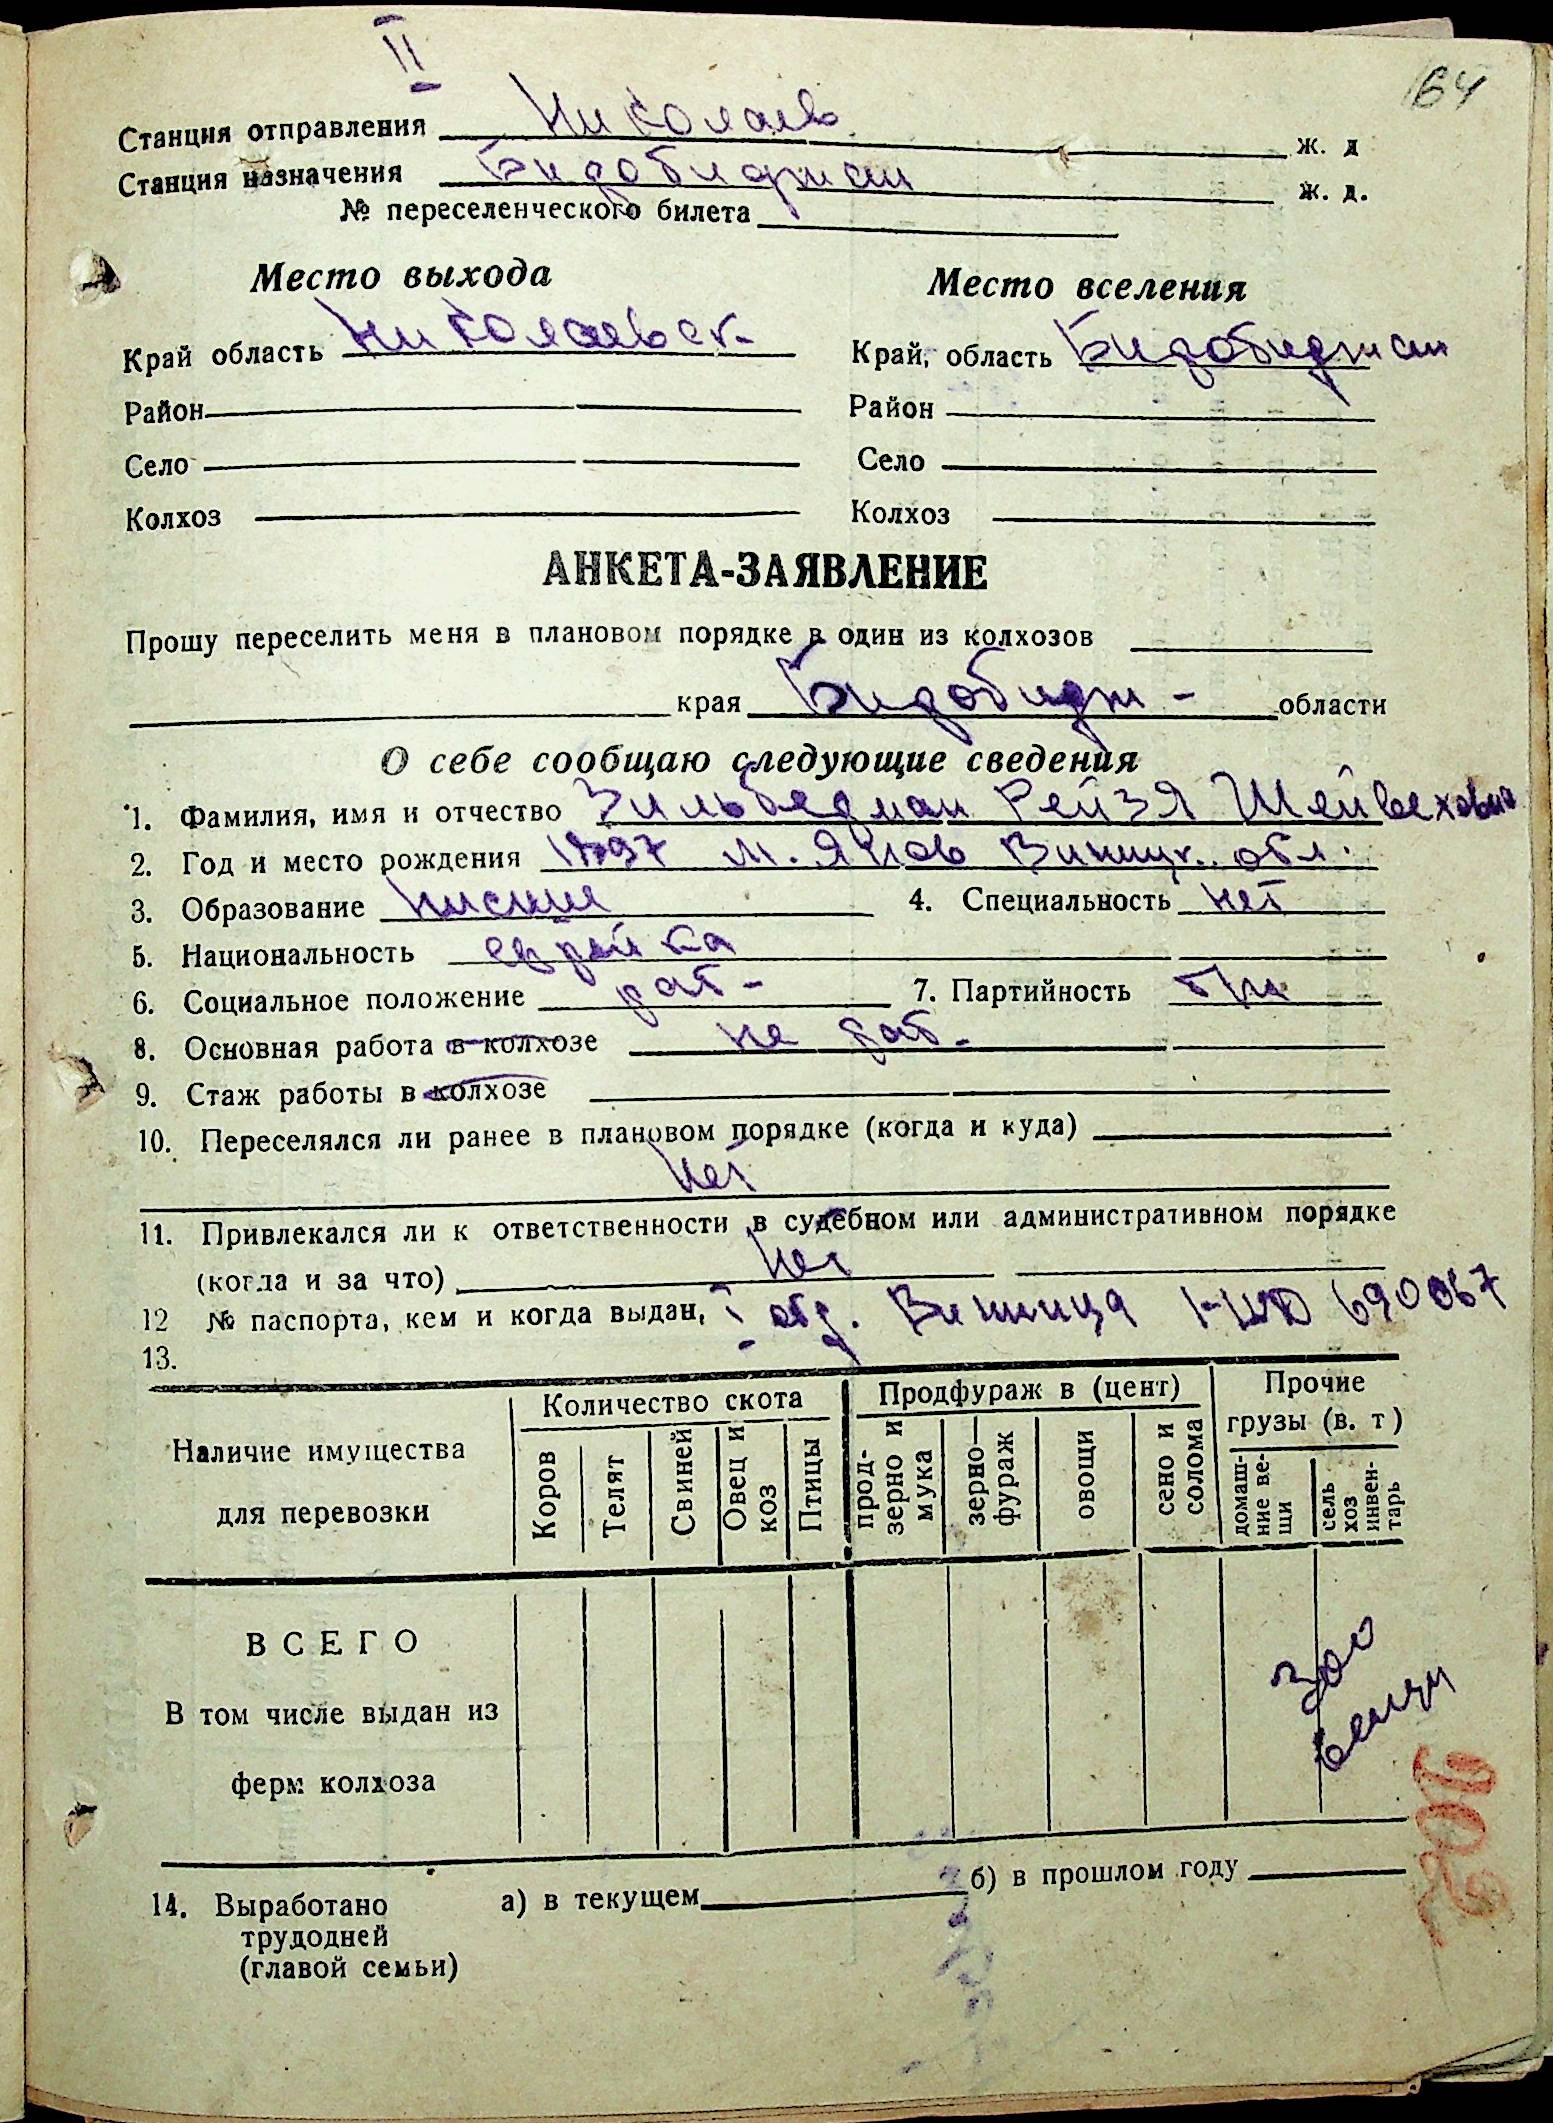 II
64
Станция отправления Николаев ж. д
Станция назначения Бидобиджан ж. д.
№ переселенческого билета
Место выхода Место вселения
Край область Николаевск- Край, область Бидобиджан
Район Район
Село Село
Колхоз Колхоз
АНКЕТА-ЗАЯВЛЕНИЕ
Прошу переселить меня в плановом порядке в один из колхозов
края Бидобидж- области
О себе сообщаю следующие сведения
1. Фамилия, имя и отчество Зильберман Рейзя Шейвеховна
2. Год и место рождения 1897 м. Янов Винницк. обл.
3. Образование низшее 4. Специальность нет
5. Национальность еврейка
6. Социальное положение раб- 7. Партийность б/п
8. Основная работа в колхозе не раб-
9. Стаж работы в колхозе
10. Переселялся ли ранее в плановом порядке (когда и куда)
нет
11. Привлекался ли к ответственности в судебном или административном порядке
(когда и за что) нет
12 № паспорта, кем и когда выдан, I отд. Винница 690067
13.
Наличие имущества для перевозки
Количество скота Продфураж в (цент) Прочие грузы (в. т)
Коров Телят Свиней Овец и коз Птицы прод-зерно и мука зерно-фураж овощи сено и солома домаш-ние ве-щи сель хоз инвен-тарь
ВСЕГО
300
вещи
В том числе выдан из
ферм колхоза
202
14. Выработано а) в текущем б) в прошлом году
трудодней
(главой семьи)